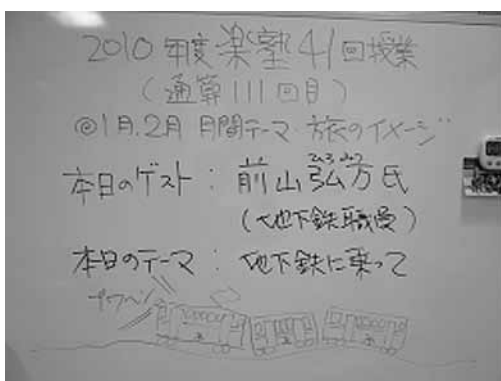 2010年度楽塾41回授業
(通算111回目)
@1月.2月 月間テーマ・旅のイメージ
本日のゲスト：前山弘方氏
(地下鉄職員)
本日のテーマ：地下鉄に乗って